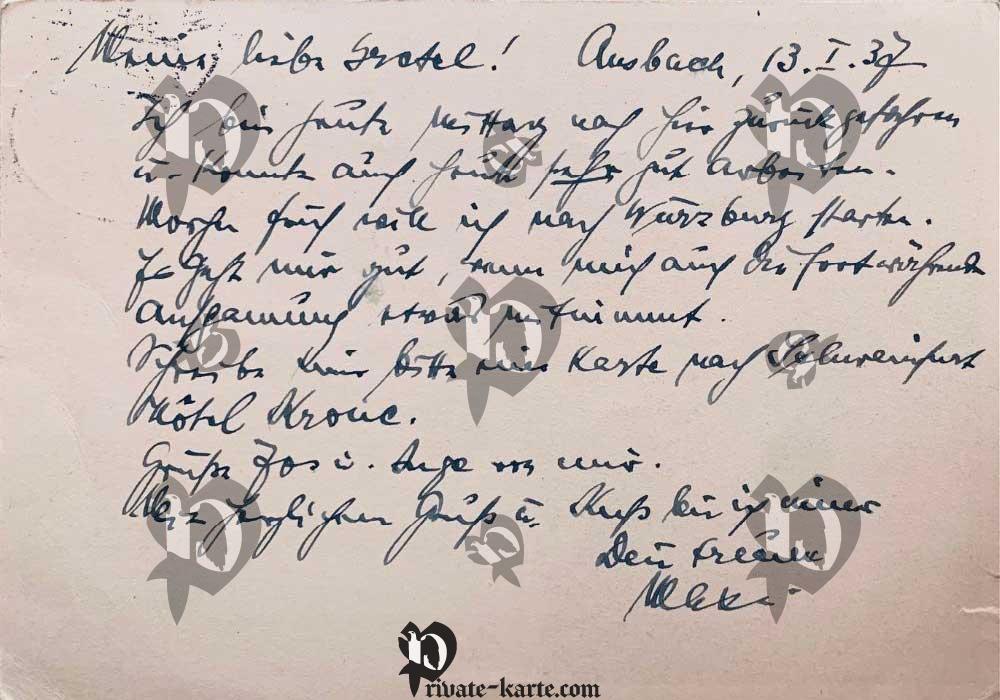 Meine liebe Gretel! Ansbach, 13.I.37
Ich bin heute Mittag nach hier zurückgefahren
u. konnte auch heute sehr gut arbeiten.
Morgen früh will ich nach Würzburg starten.
Es geht mir gut, wenn mich auch die fortwährende
Anspannung etwas mitnimmt.
Schreibe mir bitte eine Karte nach Schweinfurt
Hotel Krone.
Grüße u. Inge von mir.
Mit herzlichem Gruß u. Kuß bin ich immer
Dein treuer
Private-karte.com